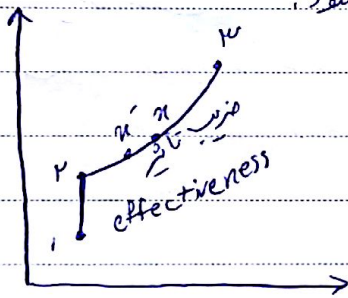 شود.
۳
x' x
ضریب تأثیر
۲
effectiveness
۱